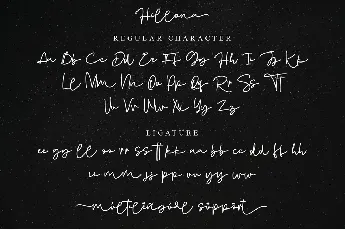 Hilleona
REGULAR CHARACTER
Aa Bb Cc Dd Ee Ff Gg Hh Ii Jj Kk
Ll Mm Nn Oo Pp Qq Rr Ss Tt
Uu Vv Ww Xx Yy Zz
LIGATURE
ee gg ll oo rr ss tt kk aa bb cc dd ff hh
ii mm ss pp uu yy ww
multilingual support